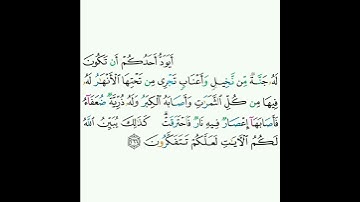 أَيَوَدُّ أَحَدُكُمْ أَن تَكُونَ
لَهُۥ جَنَّةٌ مِّن نَّخِيلٍ وَأَعْنَابٍ تَجْرِى مِن تَحْتِهَا ٱلْأَنْهَٰرُ لَهُۥ
فِيهَا مِن كُلِّ ٱلثَّمَرَٰتِ وَأَصَابَهُ ٱلْكِبَرُ وَلَهُۥ ذُرِّيَّةٌ ضُعَفَآءُ
فَأَصَابَهَآ إِعْصَارٌ فِيهِ نَارٌ فَٱحْتَرَقَتْ ۗ كَذَٰلِكَ يُبَيِّنُ ٱللَّهُ
لَكُمُ ٱلْءَايَٰتِ لَعَلَّكُمْ تَتَفَكَّرُونَ ۝٢٦٦